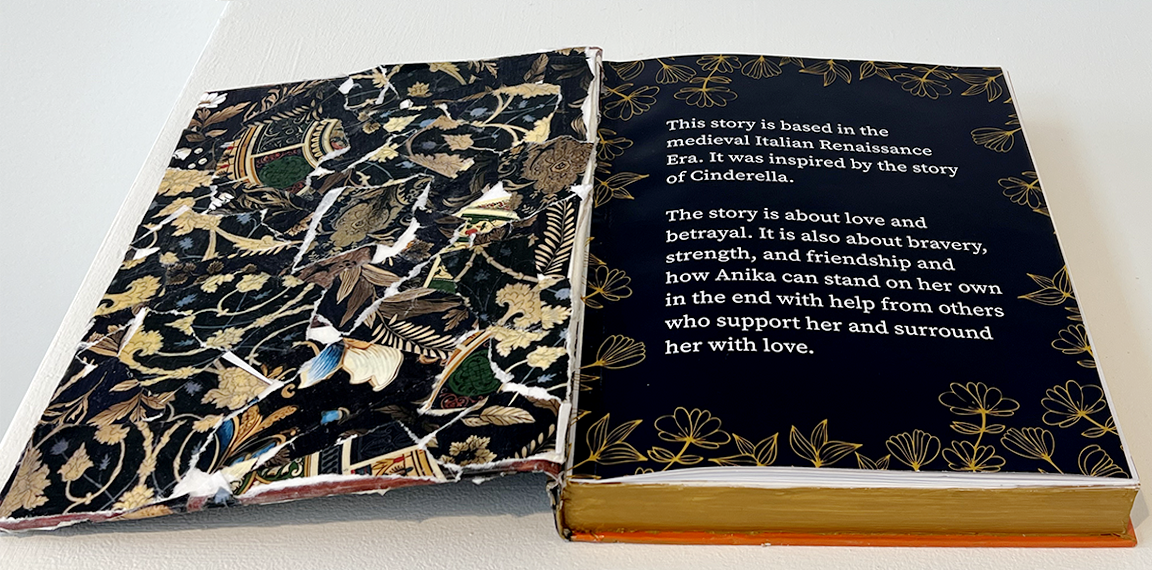 This story is based in the
medieval Italian Renaissance
Era. It was inspired by the story
of Cinderella.
The story is about love and
betrayal. It is also about bravery,
strength, and friendship and
how Anika can stand on her own
in the end with help from others
who support her and surround
her with love.